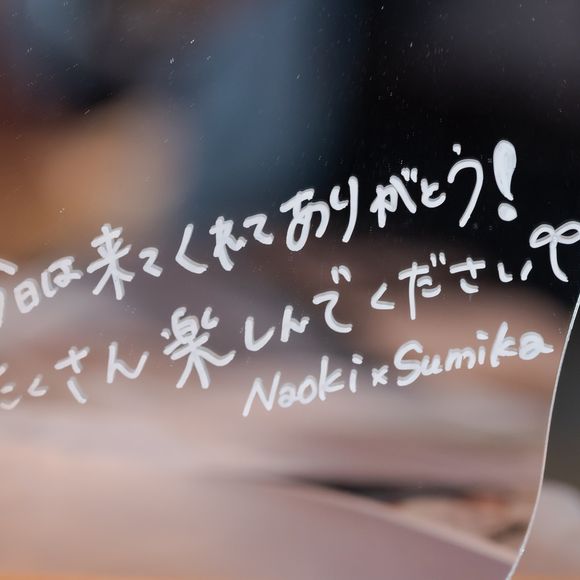 今日は来てくれてありがとう!
たくさん楽しんでください
Naoki×Sumika